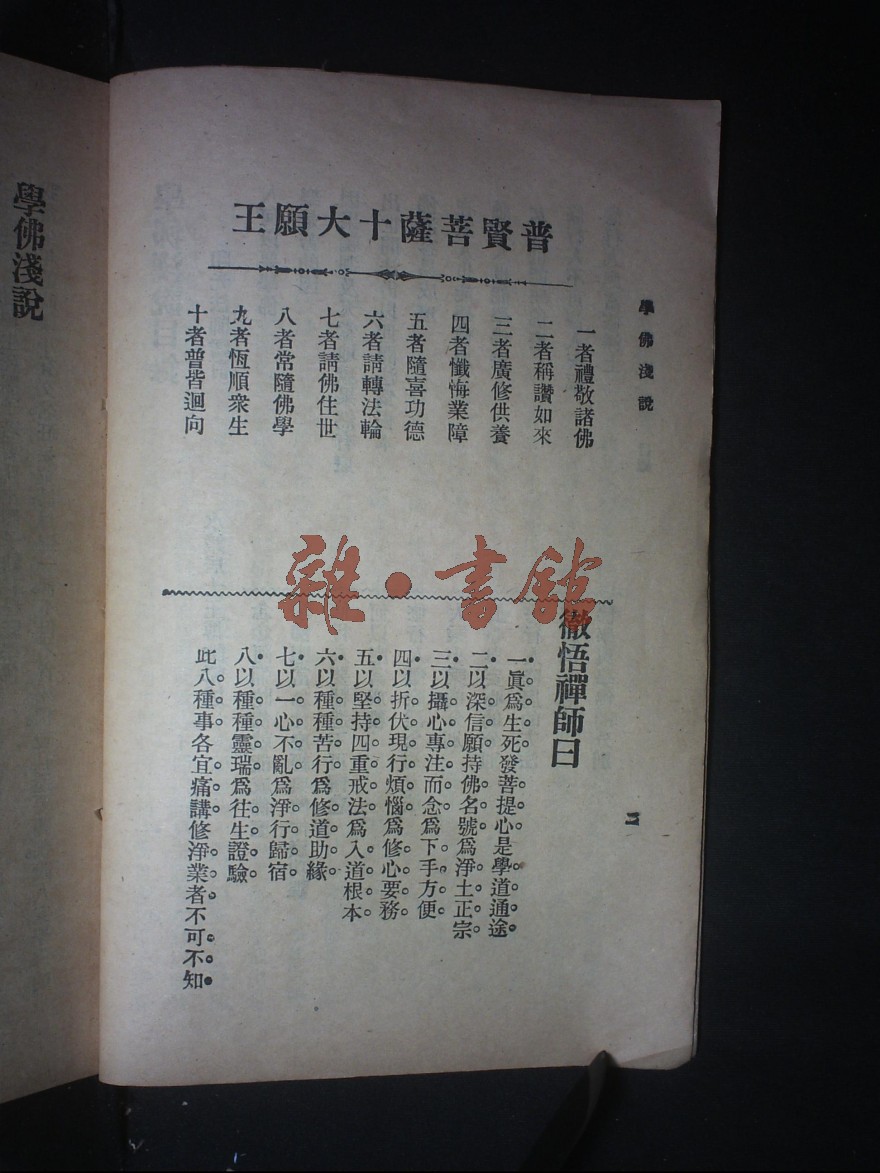 學佛淺說
普賢菩薩十大願王
一者禮敬諸佛
二者稱讚如來
三者廣修供養
四者懺悔業障
五者隨喜功德
六者請轉法輪
七者請佛住世
八者常隨佛學
九者恆順衆生
十者普皆迴向
徹悟禪師曰
一眞爲生死發菩提心是學道通途。
二以深信願持佛名號爲淨土正宗。
三以攝心專注而念爲下手方便。
四以折伏現行煩惱爲修心要務。
五以堅持四重戒法爲入道根本。
六以種種苦行爲修道助緣。
七以一心不亂爲淨行歸宿。
八以種種靈瑞爲往生證驗。
此八種事各宜痛講修淨業者不可不知。
二
學佛淺說
雜·書館